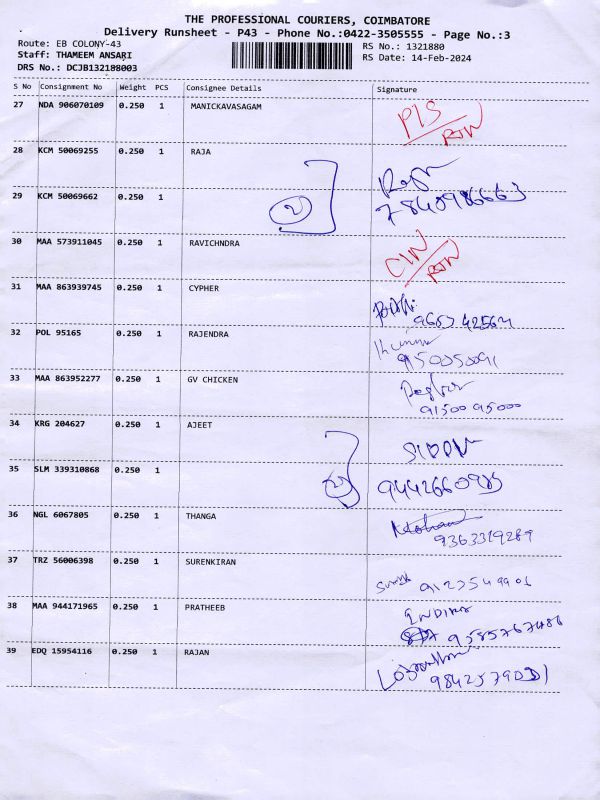 THE PROFESSIONAL COURIERS, COIMBATORE
Delivery Runsheet - P43 - Phone No.:0422-3505555 - Page No.:3
Route: EB COLONY-43
RS No.: 1321880
Staff: THAMEEM ANSARI
RS Date: 14-Feb-2024
DRS No.: DCJB132188003
S No Consignment No Weight PCS Consignee Details Signature
27 NDA 906070109 0.250 1 MANICKAVASAGAM
RTN
28 KCM 50069255 0.250 1 RAJA
29 KCM 50069662 0.250 1
2
30 MAA 573911045 0.250 1 RAVICHNDRA
RTN
31 MAA 863939745 0.250 1 CYPHER
32 POL 95165 0.250 1 RAJENDRA
9150050091
33 MAA 863952277 0.250 1 GV CHICKEN
9150095000
34 KRG 204627 0.250 1 AJEET
35 SLM 339310868 0.250 1
2
36 NGL 6067805 0.250 1 THANGA
Mohan
9363319289
37 TRZ 56006398 0.250 1 SURENKIRAN
38 MAA 944171965 0.250 1 PRATHEEB
9585767486
39 EDQ 15954116 0.250 1 RAJAN